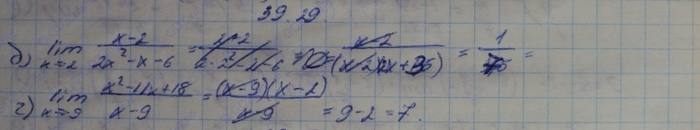 39.29.
б) lim x→2 x-2 / 2x²-x-6 = = x-2 / (x-2)(2x+3) = 1/7 =
г) lim x→9 x²-11x+18 / x-9 = (x-9)(x-2) / x-9 = 9-2=7.